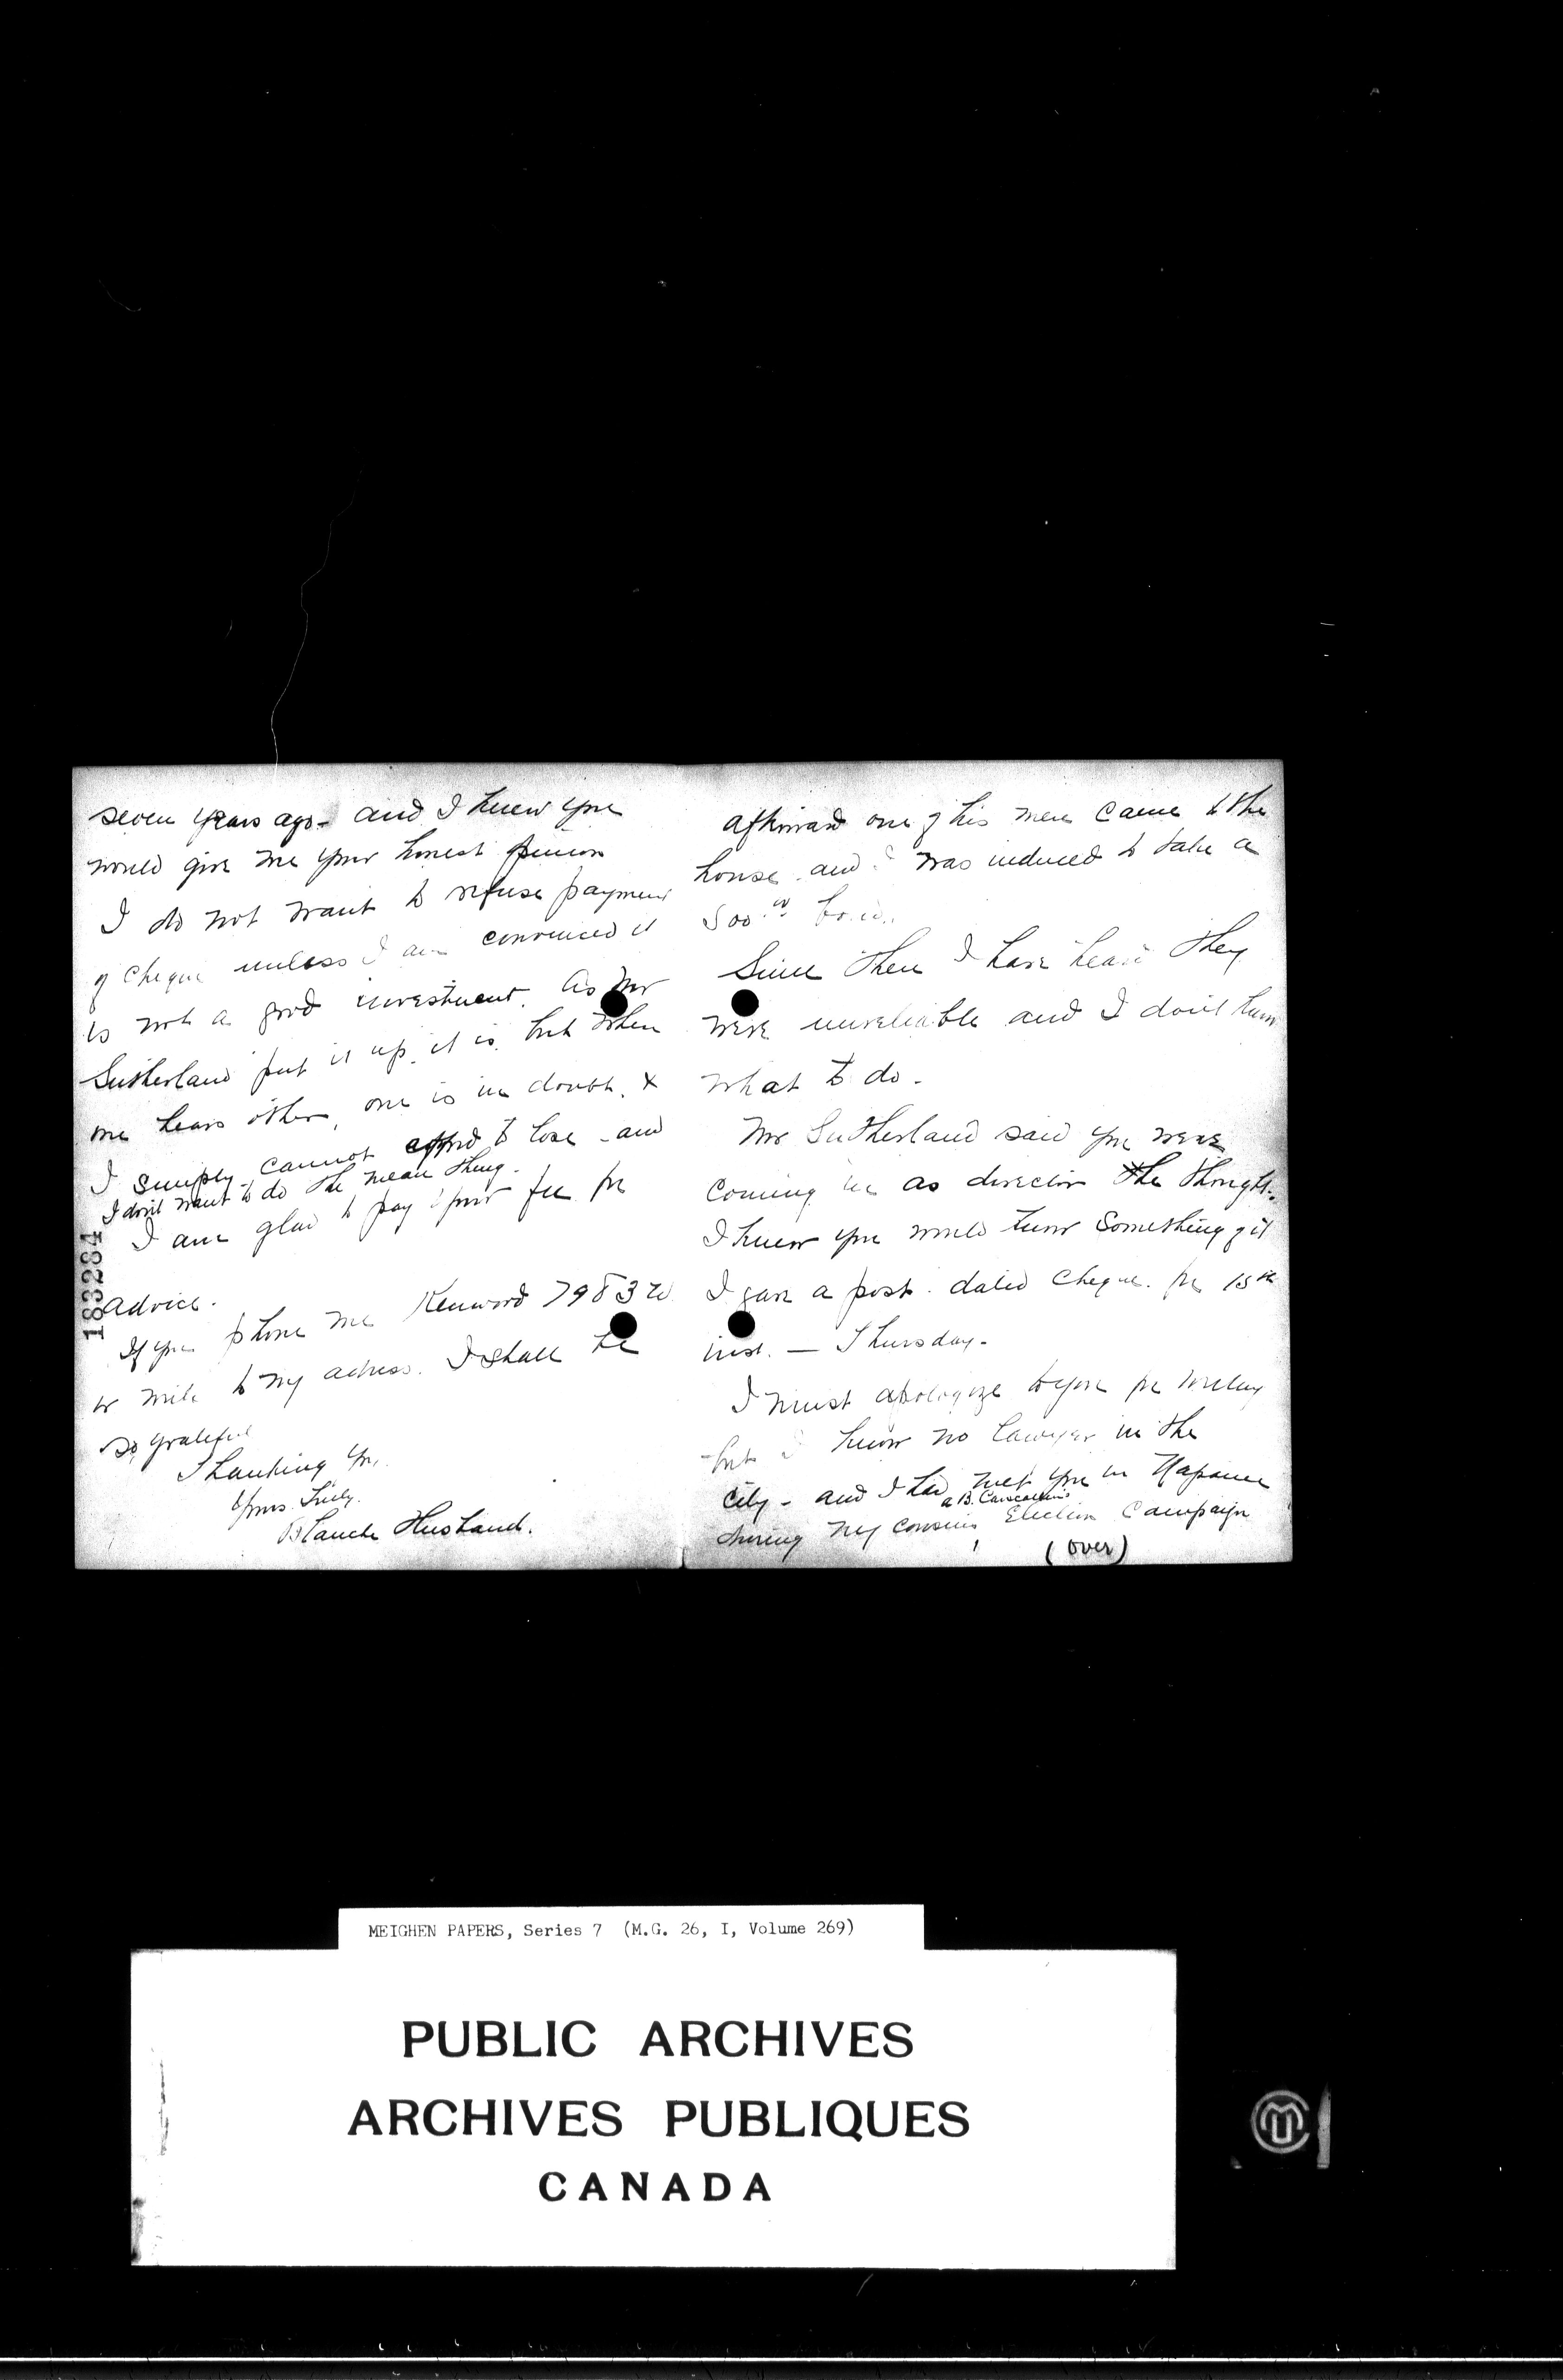 afterward one of his men came to the
house and I was induced to take a
500.00 bond.
Since then I have heard they
were unreliable and I don't know
what to do.
Mr Sutherland said you were
coming in as director he thought.
I knew you would know something of it
I gave a post-dated cheque for 15th
inst. — Thursday.
I must apologize to you for writing
but I know no lawyer in the
city - and I had met you in Napanee
a B. Carscallen's
during my cousins Election Campaign
(over)
seven years ago - and I knew you
would give me your honest opinion
I do not want to refuse payment
of cheque unless I am convinced it
is not a good investment. As Mr
Sutherland put it up, it is, but when
one hears other, one is in doubt, &
I simply cannot afford to lose - and
I don't want to do the mean thing.
I am glad to pay your fee for
advice.
If you phone me Kenwood 7983W
or write to my adress. I shall be
so grateful
Thanking you,
Yours Truly.
Blanche Husband.
183284
MEIGHEN PAPERS, Series 7 (M.G. 26, I, Volume 269)
PUBLIC ARCHIVES
ARCHIVES PUBLIQUES
CANADA